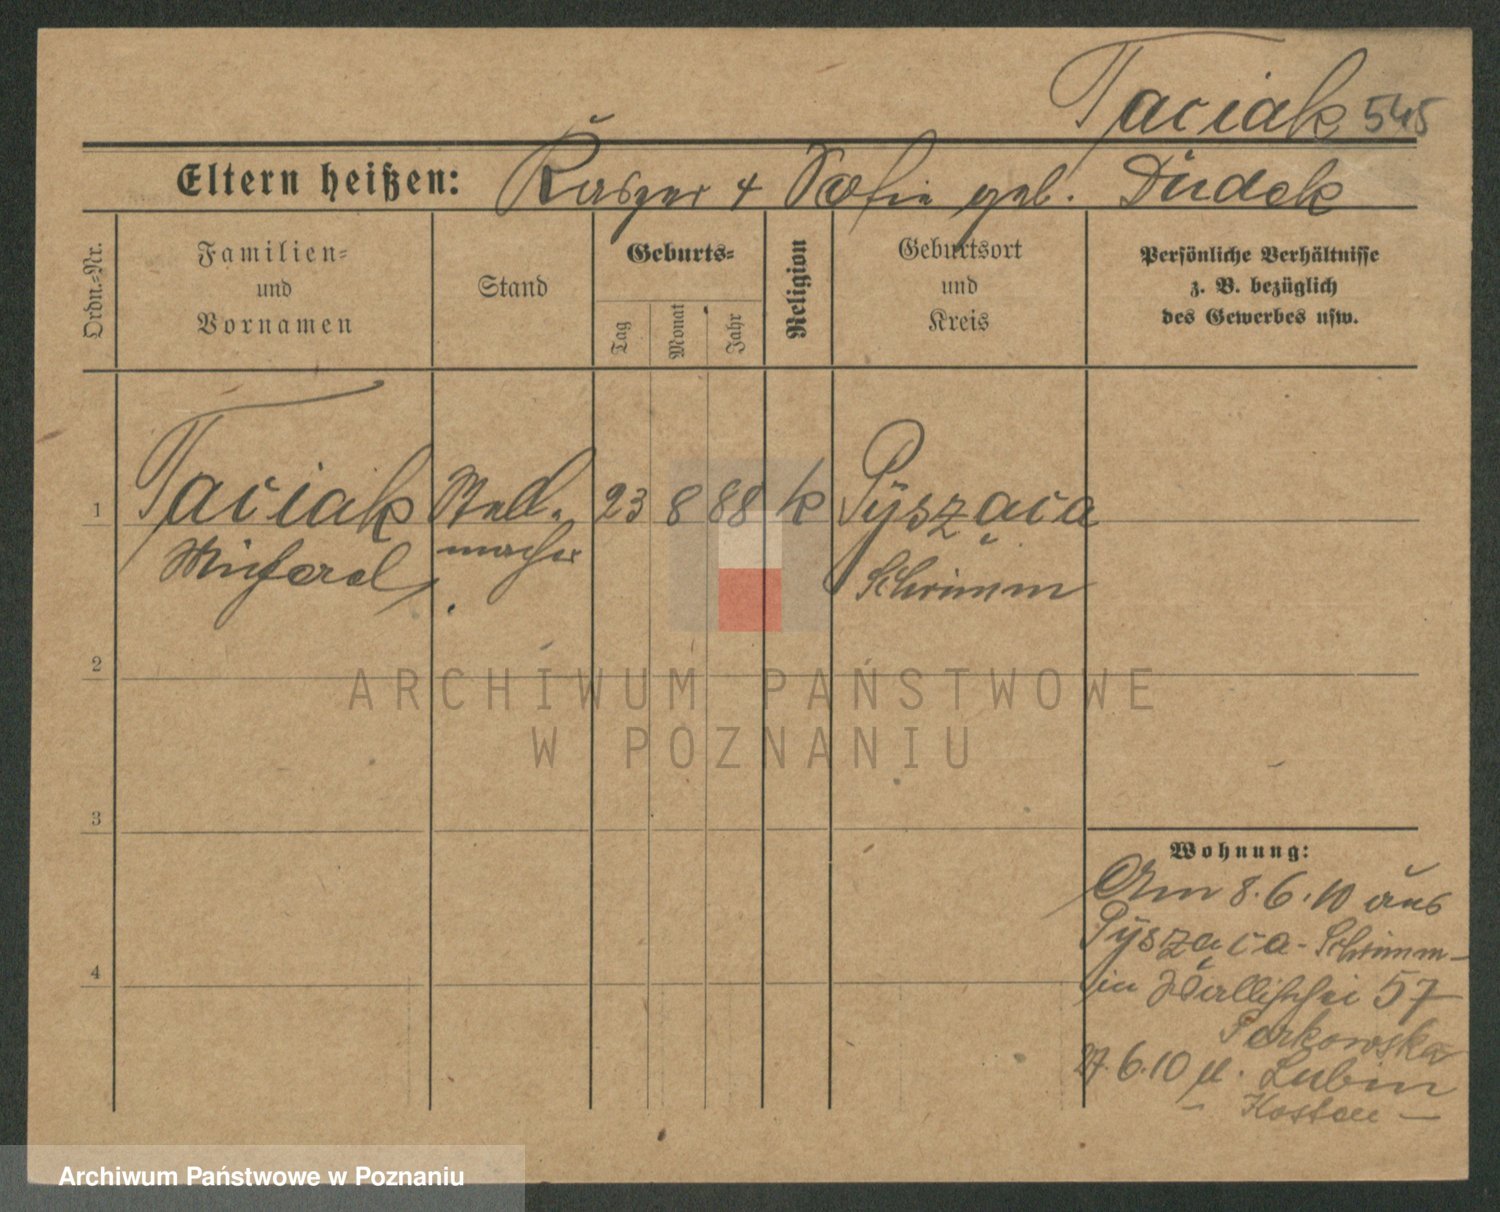 Taciak 545
Eltern heißen: Kasper + Sofie geb. Dudek
Ordn.-Nr.
Familien-
und
Vornamen
Stand
Geburts-
Tag
Monat
Jahr
Religion
Geburtsort
und
Kreis
Persönliche Verhältnisse
z. B. bezüglich
des Gewerbes usw.
1 Taciak Stell- 23 8 88 k Pysząca
Michael macher Schrimm
2
3
4
Wohnung:
Am 8.6.10 aus
Pysząca - Schrimm -
in Wallischei 57
27.6.10 n. Lubin
- Kosten -
ARCHIWUM PAŃSTWOWE
W POZNANIU
Archiwum Państwowe w Poznaniu